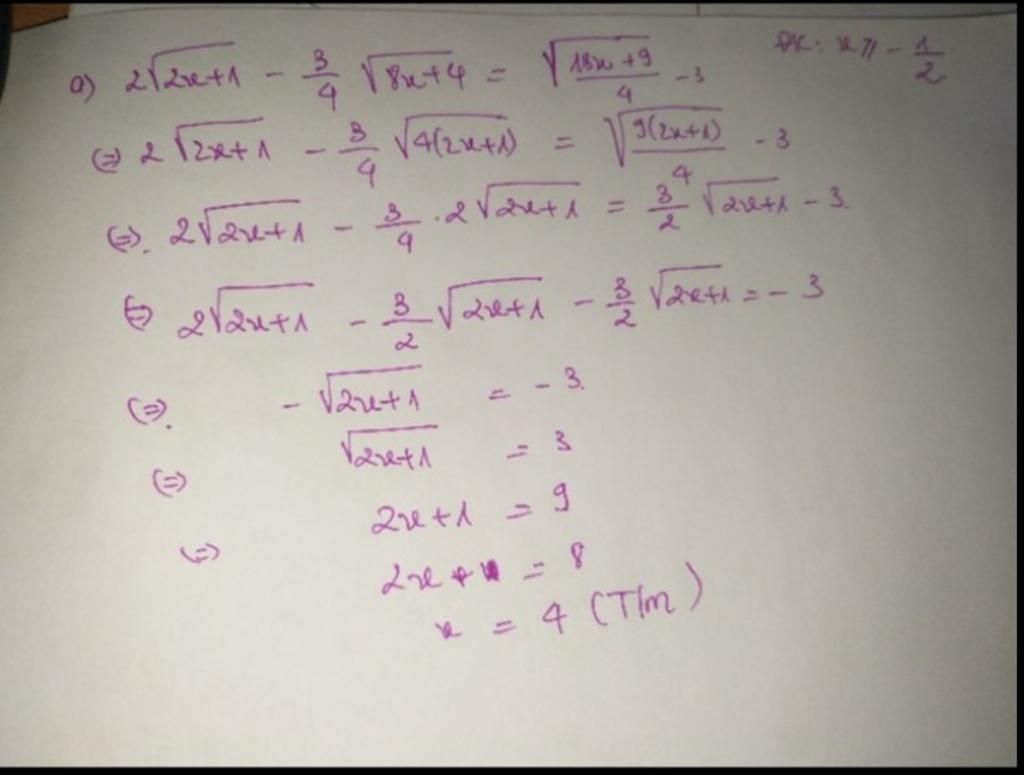 a) 2√(2x+1) - 3/4 √(8x+4) = √((18x+9)/4) - 3 ĐK: x ≥ -1/2
(=) 2√(2x+1) - 3/4 √(4(2x+1)) = √(9(2x+1)/4) - 3
(=). 2√(2x+1) - 3/4 . 2√(2x+1) = 3/2 √(2x+1) - 3.
(=) 2√(2x+1) - 3/2 √(2x+1) - 3/2 √(2x+1) = - 3
(=). - √(2x+1) = - 3.
(=) √(2x+1) = 3
(=) 2x+1 = 9
2x = 8
x = 4 (T/m)